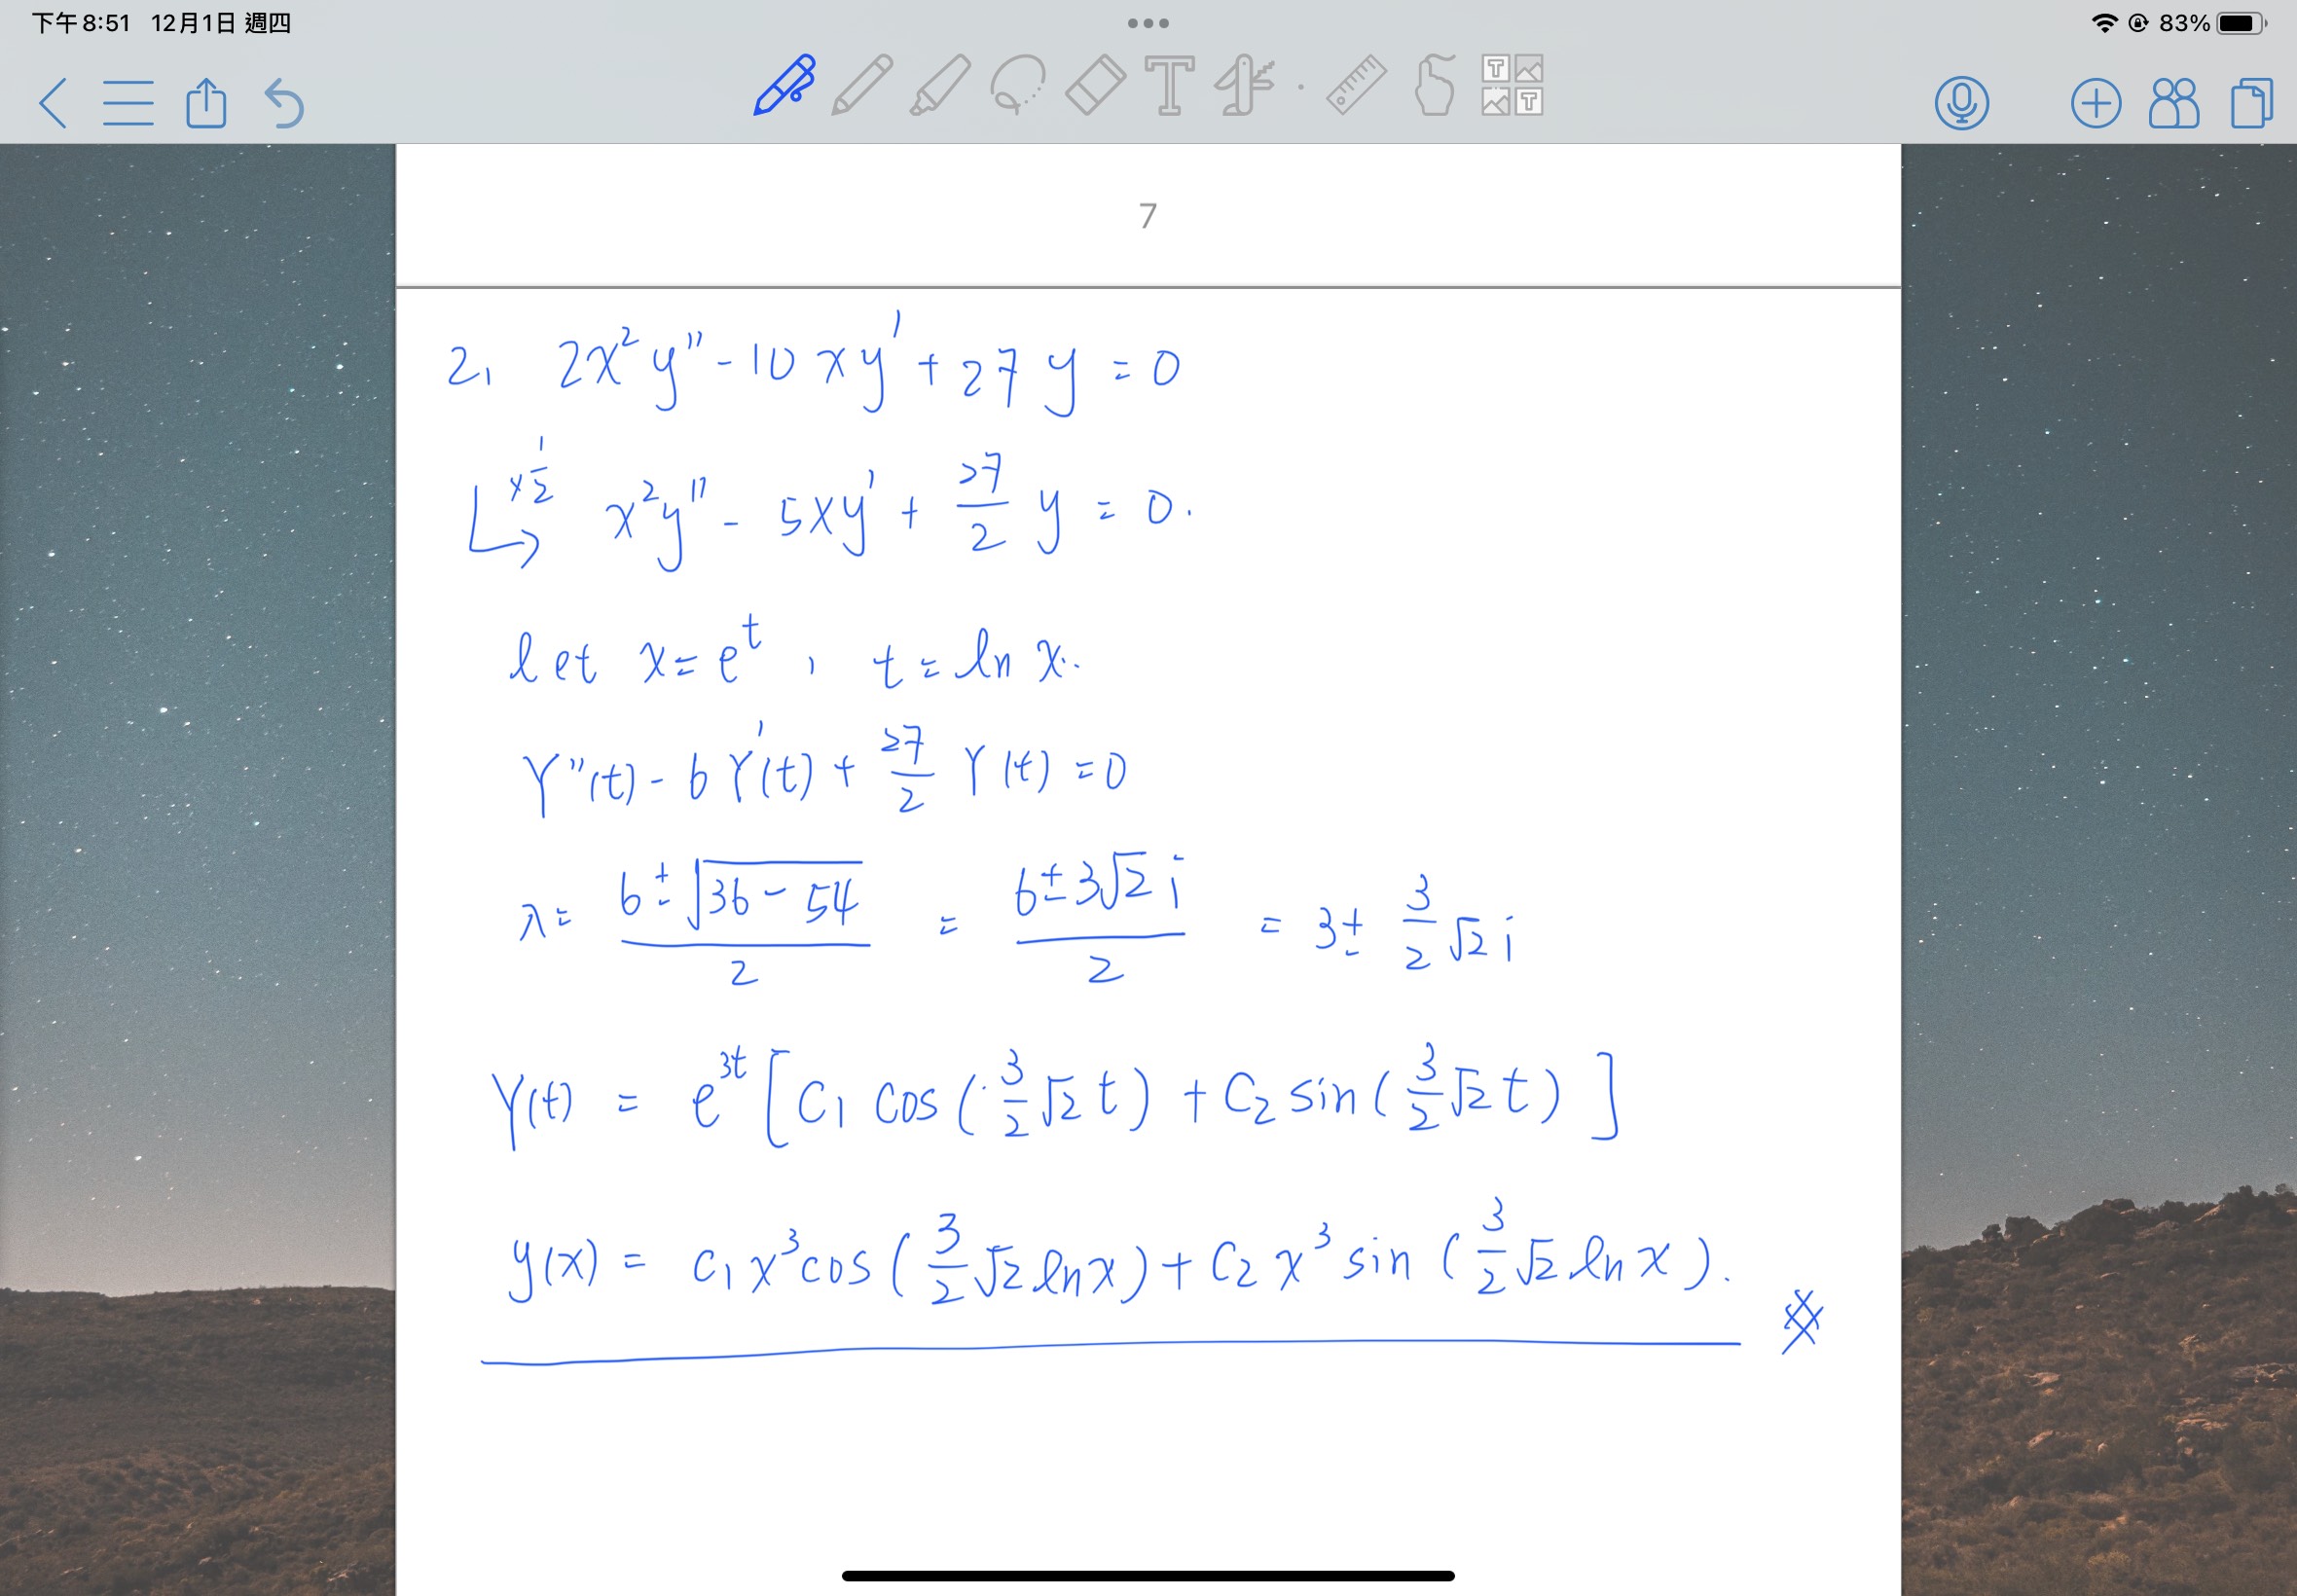 下午8:51 12月1日 週四
83%
7
2. 2x² y'' - 10 xy' + 27 y = 0
×1/2 x²y'' - 5xy' + 27/2 y = 0.
let x = e^t , t = ln x.
Y''(t) - 6 Y'(t) + 27/2 Y(t) = 0
λ = (6 ± √(36 - 54))/2 = (6 ± 3√2 i)/2 = 3 ± 3/2 √2 i
Y(t) = e^3t [ C₁ cos ( 3/2 √2 t ) + C₂ sin ( 3/2 √2 t ) ]
y(x) = C₁ x³ cos ( 3/2 √2 ln x ) + C₂ x³ sin ( 3/2 √2 ln x ).